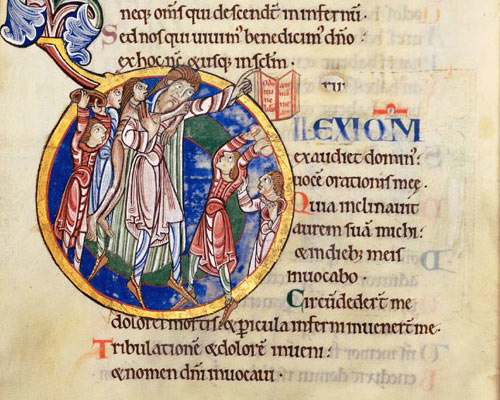 neq; om̄s qui descendt̄ in infernū.
Sed nos qui uiuim' benedicim' dn̄o
ex hoc nc̄ & usq; in sclm̄.
ILEXI QM̄
exaudiet domin':
uocē orationis meę.
Quia inclinauit
aurem suā michi:
& in dieb; meis
inuocabo.
Circūdeder̄t me
dolores mortis: & pericula inferni inuener̄t me.
Tribulationē & dolorē inueni:
& nomen dn̄i inuocaui.